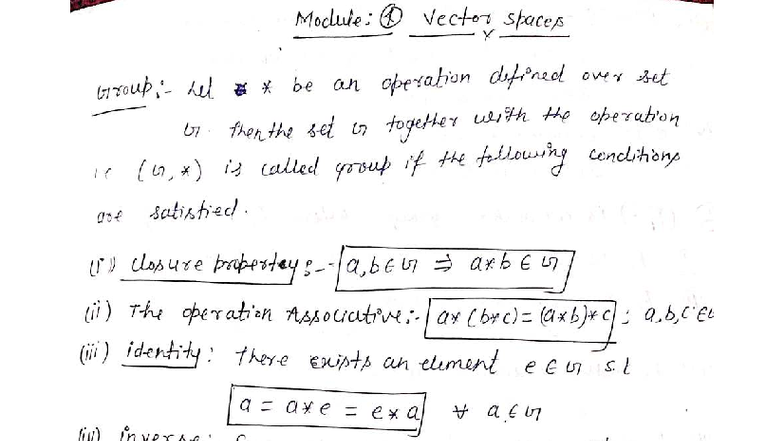 Module: ① Vector spaces
Group:- Let * be an operation defined over set
G. then the set G together with the operation
i.e (G, *) is called group if the following conditions
are satisfied.
(i) closure property:- a, b ∈ G ⇒ a*b ∈ G
(ii) The operation Associative:- a*(b*c) = (a*b)*c ; a,b,c ∈ G
(iii) identity: There exists an element e ∈ G s.t
a = a*e = e*a ∀ a ∈ G
(iv) inverse: